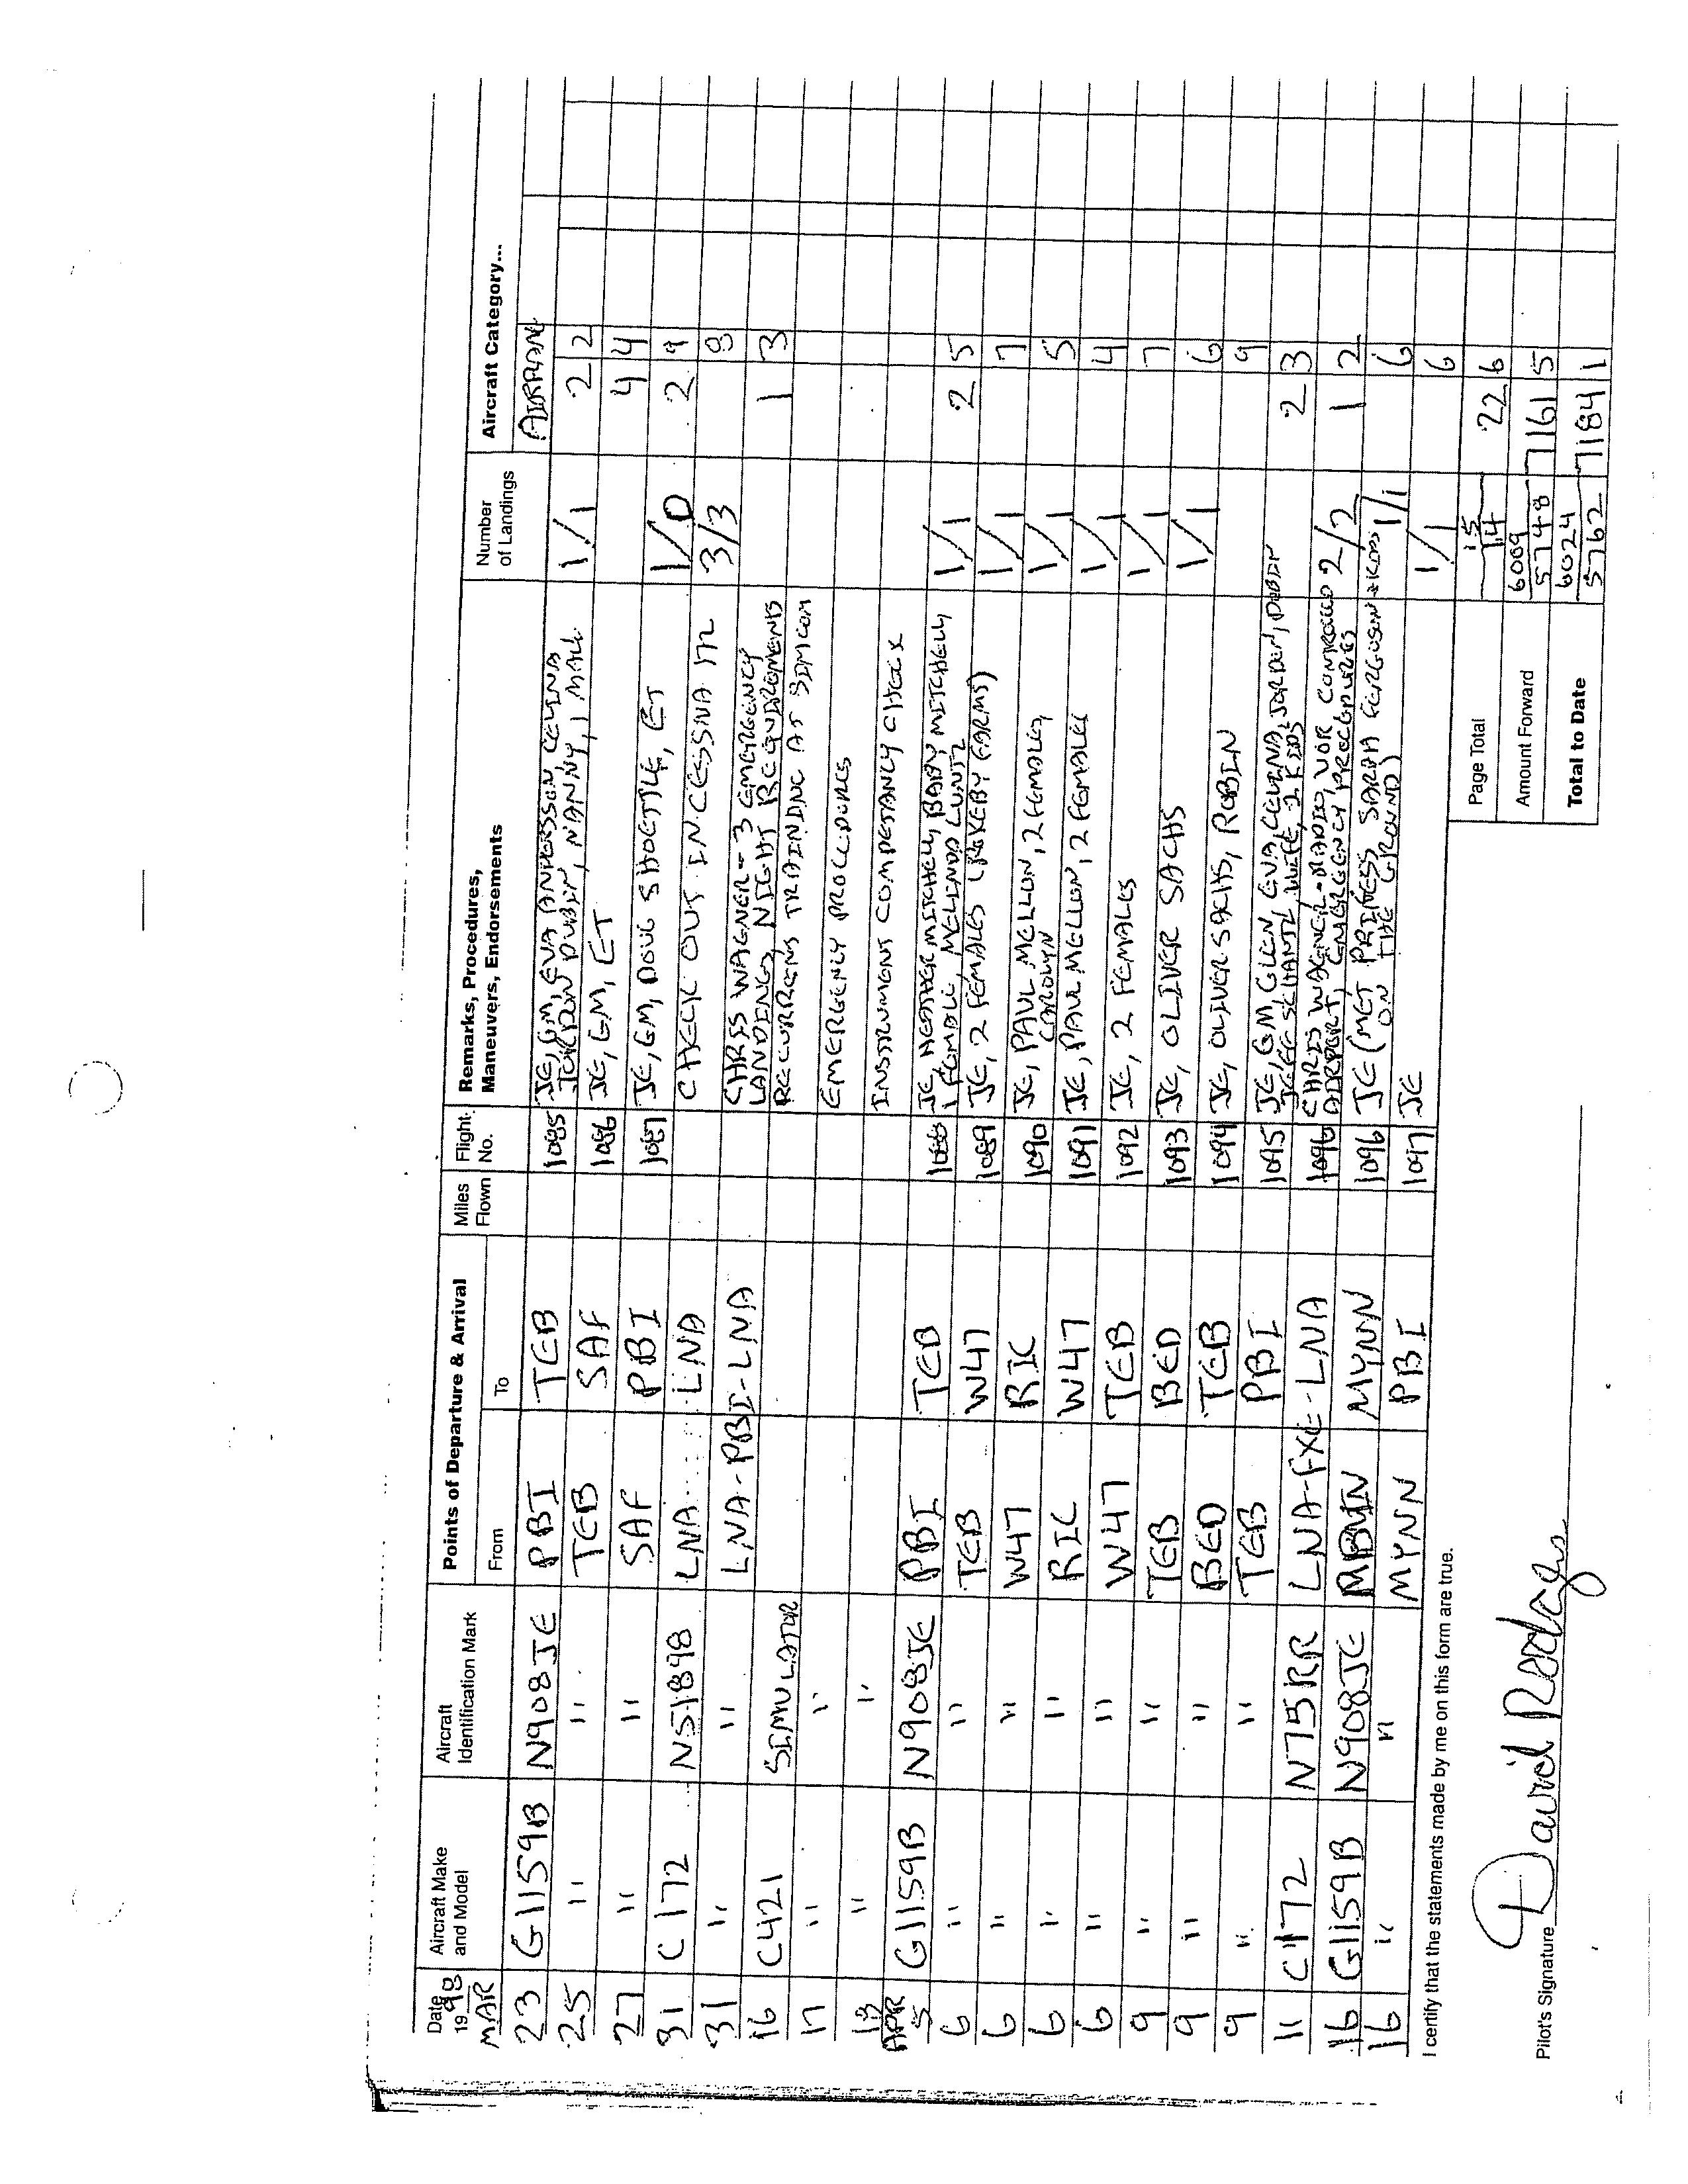 Date 19 98 Aircraft Make and Model Aircraft Identification Mark Points of Departure & Arrival From To Miles Flown Flight No. Remarks, Procedures, Maneuvers, Endorsements Number of Landings Aircraft Category...
MAR AIRPLANE
23 G1159B N908JE PBI TEB 1085 JE, GM, EVA ANDERSSON, CELINA 1/1 2 2
JORDAN DUBIN, NANNY, 1 MALE
25 " " TEB SAF 1086 JE, GM, ET 4 4
27 " " SAF PBI 1087 JE, GM, DOUG SHOETTLE, ET 1/0 2 9
31 C172 N51898 LNA LNA CHECK OUT IN CESSNA 172 3/3 8
31 " " LNA-PBI-LNA CHRIS WAGNER - 3 EMERGENCY 1 3
LANDINGS, NIGHT REQUIREMENTS
16 C421 SIMULATOR RECURRENT TRAINING AT SIMCOM
17 " " EMERGENCY PROCEDURES
18 " " INSTRUMENT COMPETANCY CHECK
APR
5 G1159B N908JE PBI TEB 1088 JE, HEATHER MITCHELL, BABY MITCHELL 1/1 2 5
1 FEMALE, MELINDA LUNTZ
6 " " TEB W47 1089 JE, 2 FEMALES (OKEBY FARMS) 1/1 7
6 " " W47 RIC 1090 JE, PAUL MELLON, 2 FEMALES 1/1 5
CAROLYN
6 " " RIC W47 1091 JE, PAUL MELLON, 2 FEMALES 1/1 4
6 " " W47 TEB 1092 JE, 2 FEMALES 1/1 7
9 " " TEB BED 1093 JE, OLIVER SACHS 1/1 6
9 " " BED TEB 1094 JE, OLIVER SACHS, ROBIN 9
9 " " TEB PBI 1095 JE, GM, GLEN EVA, CELINA, JORDAN, DUBIN 2 3
JEFF SCHANTZ, WIFE, 2 KIDS
11 C172 N75RR LNA-FXE-LNA 1096 CHRIS WAGNER - RADIO, VOR CONTROLLED 2/2 1 2
AIRPORT, EMERGENCY PROCEDURES
16 G1159B N908JE MYNN 1096 JE (MET PRINCESS SARAH FERGUSON + KIDS 1/1 6
ON THE GROUND)
16 " " MYNN PBI 1097 JE 1/1 6
I certify that the statements made by me on this form are true.
Page Total 15 14 22 6
Amount Forward 6009 5748 7161 5
Total to Date 6024 5762 7184 1
Pilot's Signature David Rodgers